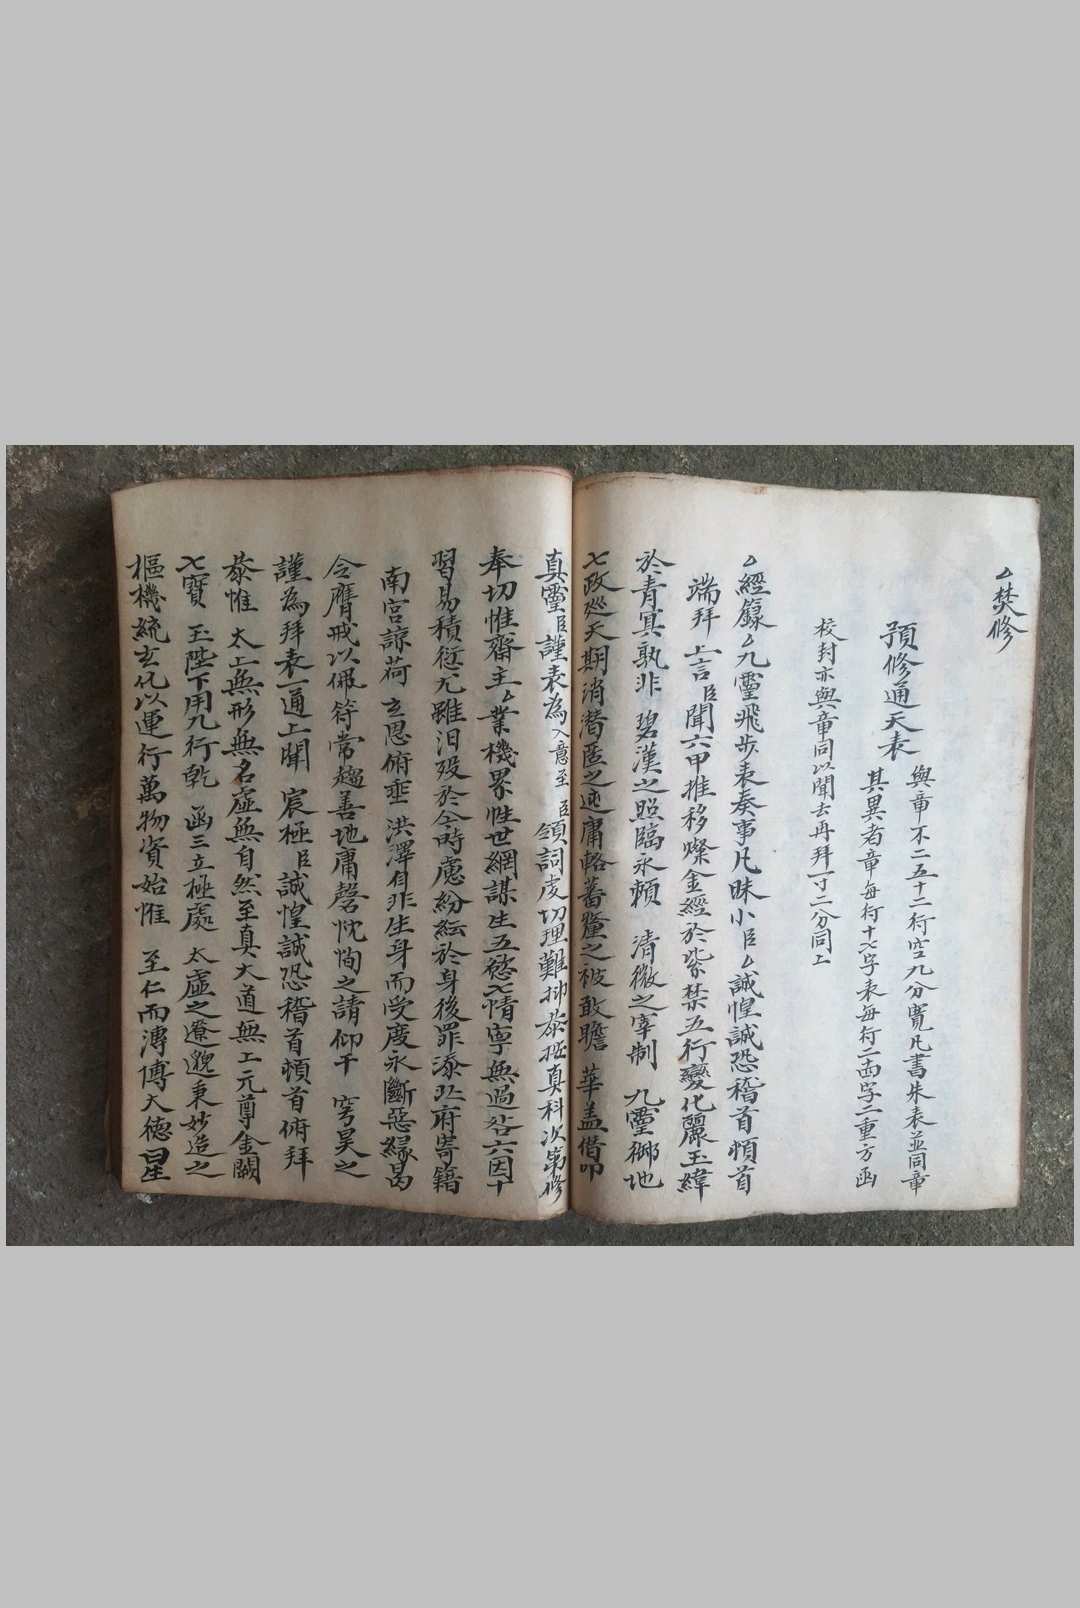 焚修
預修通天表
與章不二五十二行空九分寬凡書朱表並同章
其異者章每行十七字表每行二面字二重方函
校封亦與章同以聞去再拜一寸二分同上
經籙ム九靈飛步表奏事凡昧小臣ム誠惶誠恐稽首頓首
端拜上言臣聞六甲推移燦金經於紫禁五行變化麗玉緯
於青冥孰非 碧漢之照臨永賴 清微之宰制 九靈鄉地
七政巡天期消潛匿之迹庸輅蕃釐之被敢瞻 華盖偕叩
真靈臣謹表為入意至臣領詞虔切理難抑恭按真科次第修
奉切惟齋主ム業機界性世網謀生五慾七情寧無過咎六因十
習易積愆尤雖汨殁於今時慮紛紜於身後罪添北府寄籍
南宮諒荷 玄恩俯垂 洪澤自非生身而受度永斷惡緣曷
令膺戒以佩符常趨善地庸罄忱恂之請仰干 穹昊之
謹為拜表一通上聞 宸極臣誠惶誠恐稽首頓首俯拜
恭惟 太上無形無名虛無自然至真大道無上元尊金闕
七寶 玉陛下用九行乾 函三立極處 太虛之遼邈秉妙造之
樞機統玄化以運行萬物資始惟 至仁而溥博大德曰生